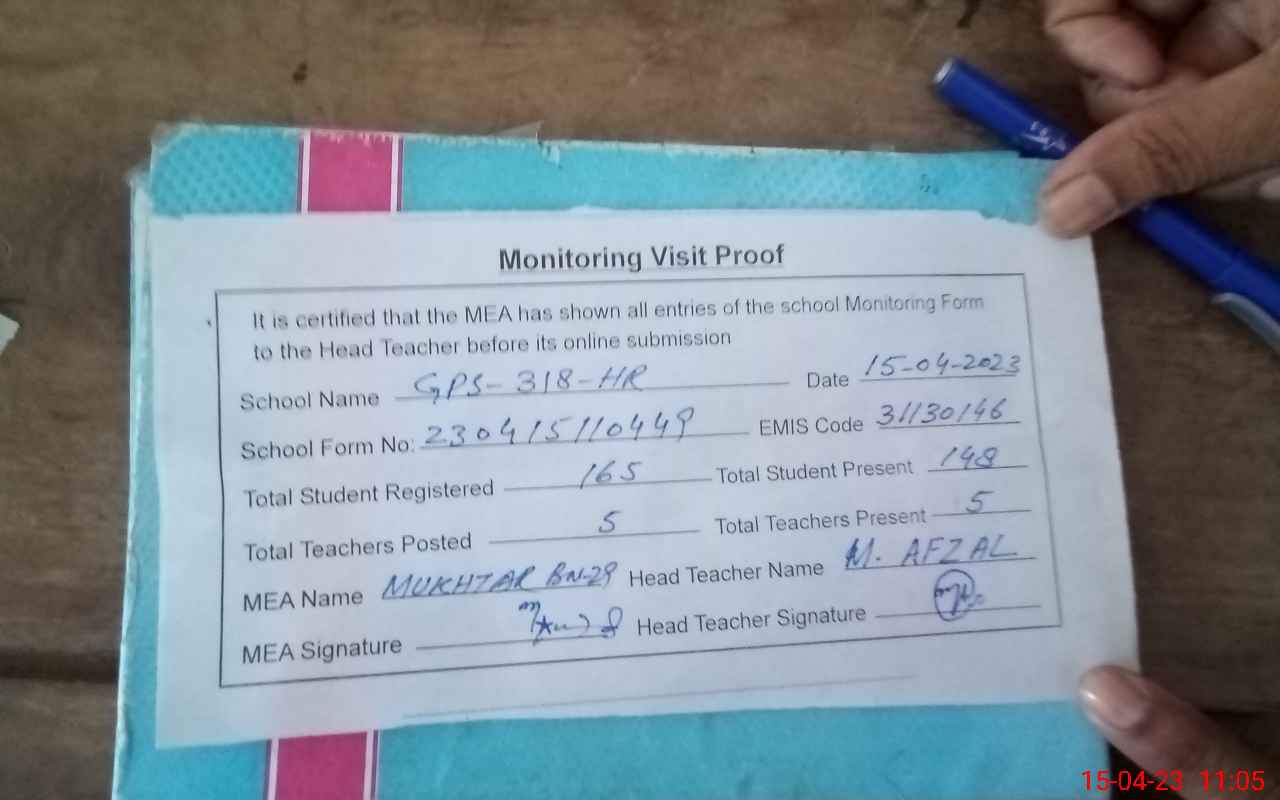 Monitoring Visit Proof
It is certified that the MEA has shown all entries of the school Monitoring Form
to the Head Teacher before its online submission
School Name GPS-318-HR Date 15-04-2023
School Form No: 230415110449 EMIS Code 31130146
Total Student Registered 165 Total Student Present 148
Total Teachers Posted 5 Total Teachers Present 5
MEA Name MUKHTAR BN-29 Head Teacher Name M. AFZAL
MEA Signature Head Teacher Signature
15-04-23 11:05